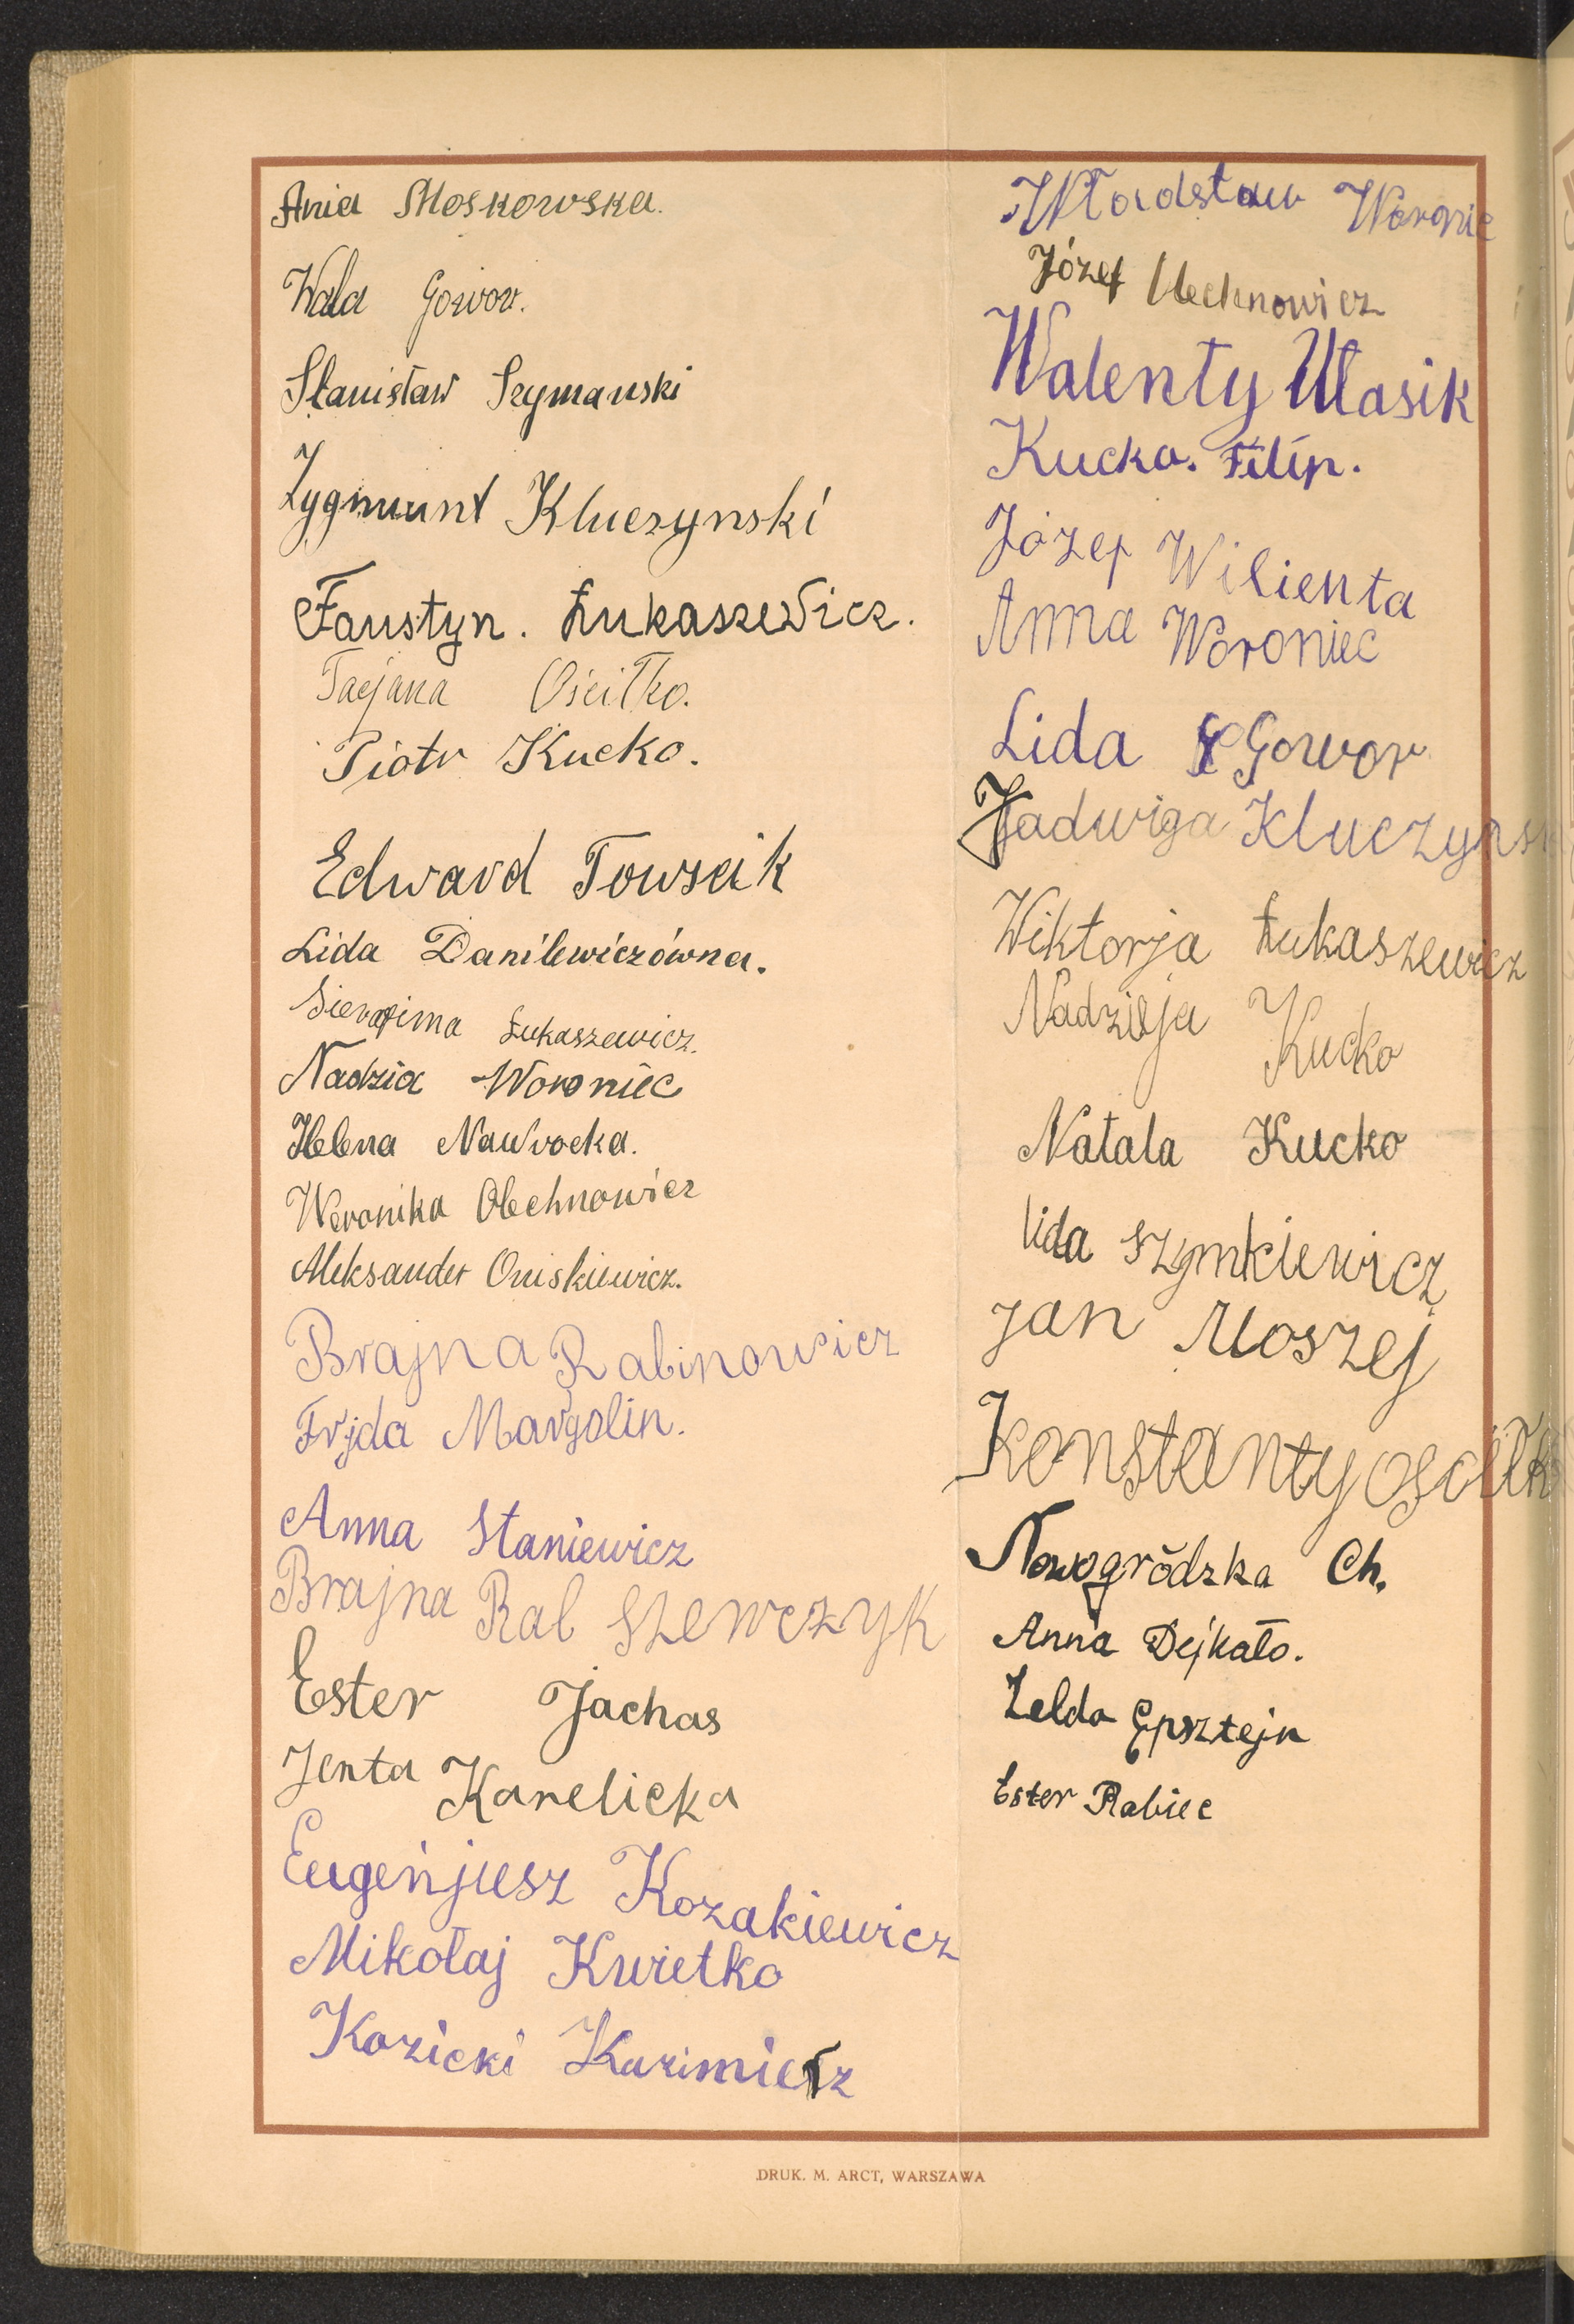 Ania Moskowska.
Wala Gowor.
Stanisław Szymanski
Zygmunt Kluczynski
Faustyn. Łukaszewicz.
Tacjana Ościłko.
Piotr Kucko.
Edward Towscik
Lida Danilewiczówna.
Sierafima Łukaszewicz.
Nadzia Woroniec
Helena Nawrocka.
Weronika Olechnowicz
Aleksander Oniskiewicz.
Brajna Rabinowicz
Frjda Margolin.
Anna Staniewicz
Brajna Rab Szewczyk
Ester Jachas
Jenta Karelicka
Eugenjusz Kozakiewicz
Mikołaj Kwietko
Kozicki Kazimierz
Władsław Woronie
Józef Olechnowicz
Walenty Ułasik
Kucko. Filip.
Józef Wilienta
Anna Woroniec
Lida Gowor
Jadwiga Kluczynsk
Wiktorja Łukaszewicz
Nadzieja Kucko
Natala Kucko
Lida Szymkiewicz
Jan Moszej
Konstanty Ościłk
Nowogródzka Ch.
Anna Dejkało.
Zelda Epsztejn
Ester Rabiec
DRUK. M. ARCT, WARSZAWA